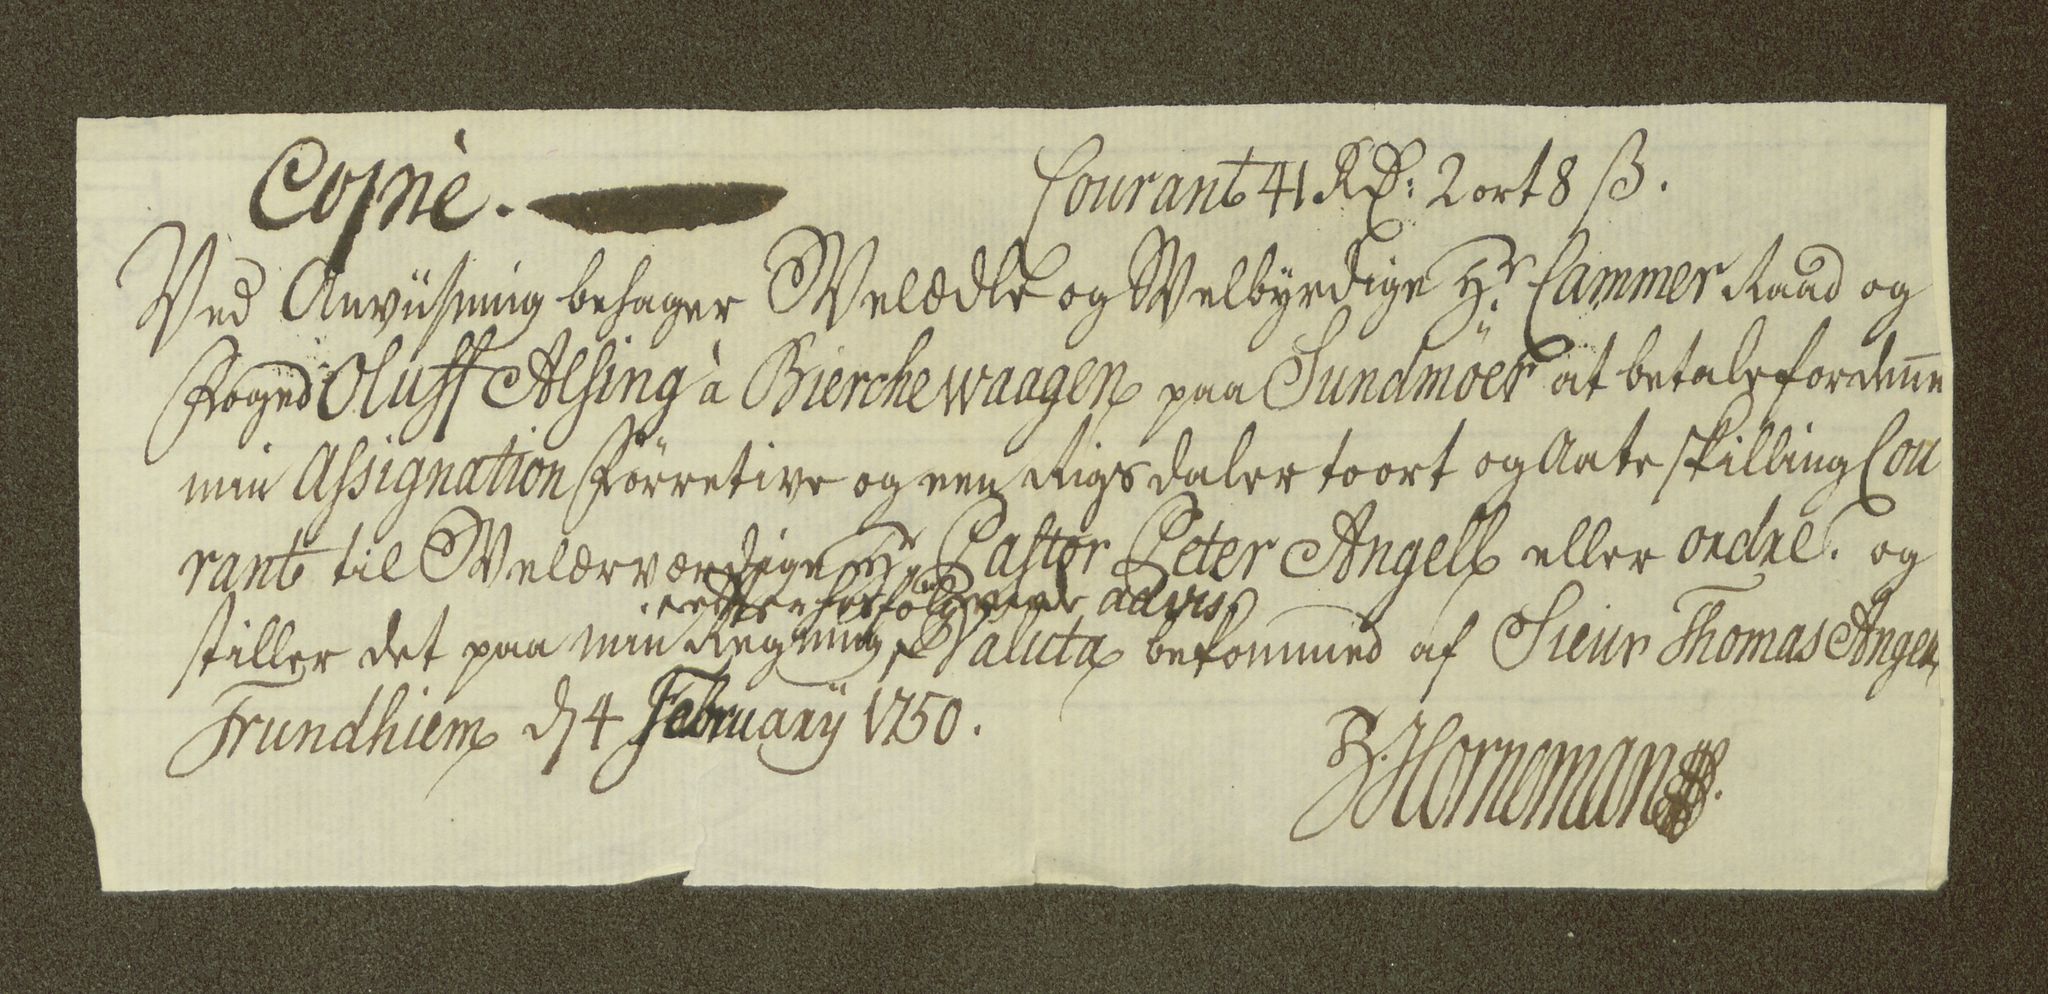 Copiè. Courant 41 Rd: 2 ort 8 ß.
Ved Anviisning behager Welædle og Welbyrdige Hr. Cammer Raad og
Foged Oluff Alsing à Bierchewaagen paa Sundmöer at betale for denne
min Assignation Förretive og een Rigsdaler to ort og Aate skilling Cou
rant til Welærværdige Hr. Pastor Peter Angell eller ordre. og
efter hosfölgende advis
stiller det paa min Regning, Valuta bekommed af Sieur Thomas Angell,
Trundhiem d 4 February 1750.
B. Hornemann